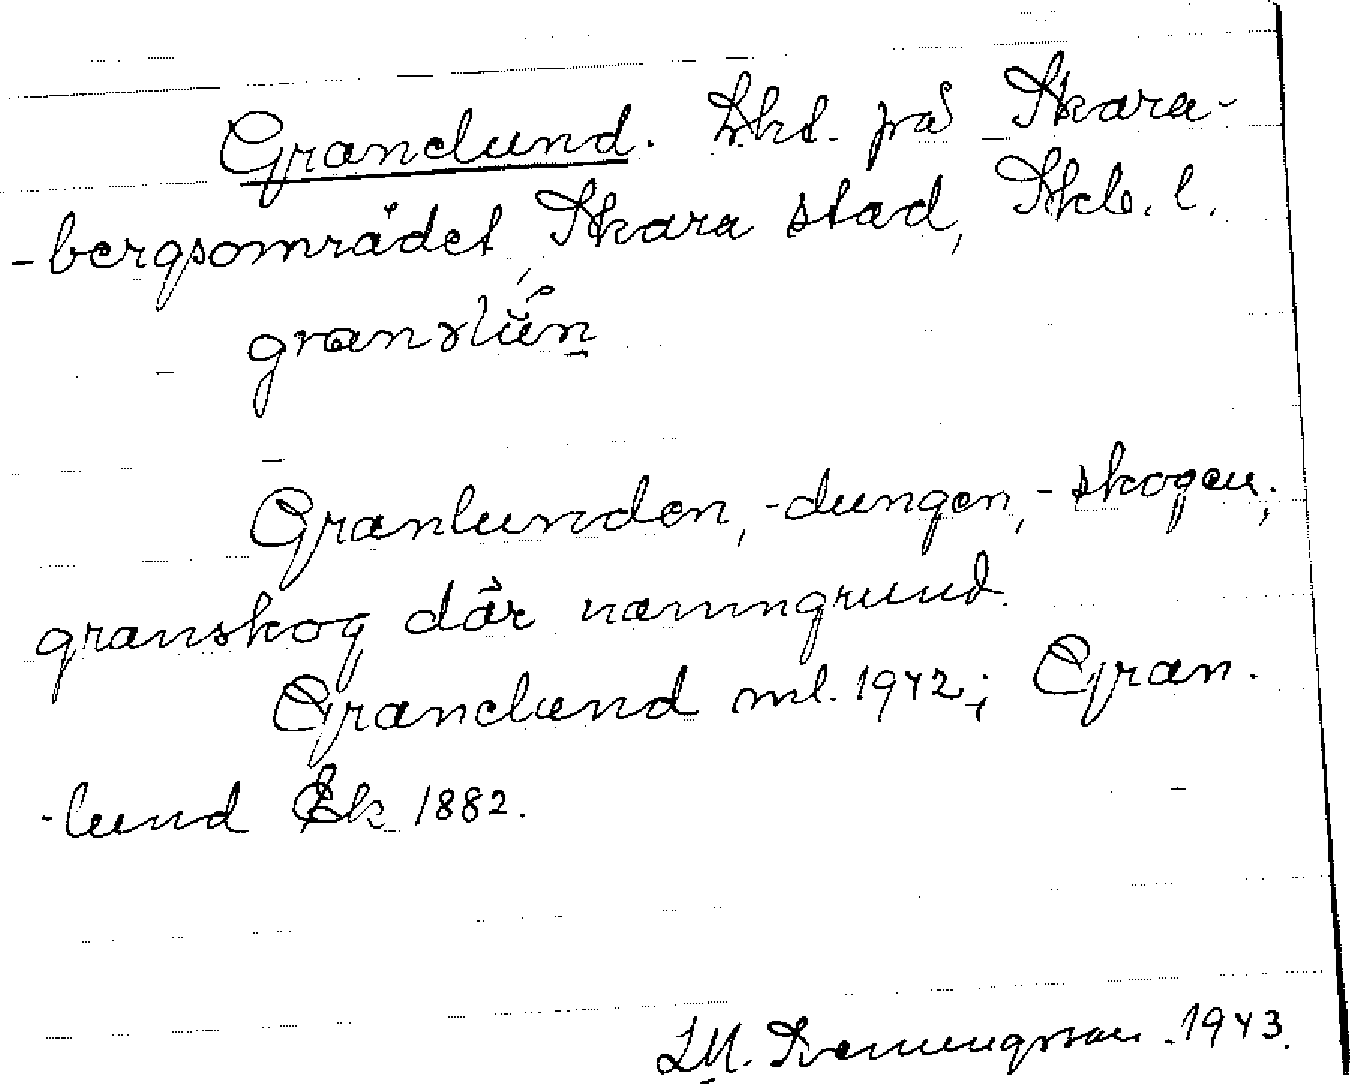 Granelund. Lht. på Skara-
-bergsområdet Skara stad, Skb. l.
Granlunden, -dungen, -skogen;
granskog där namngrund.
Granelund ml. 1942; Gran-
-lund Ek 1882.
1943.